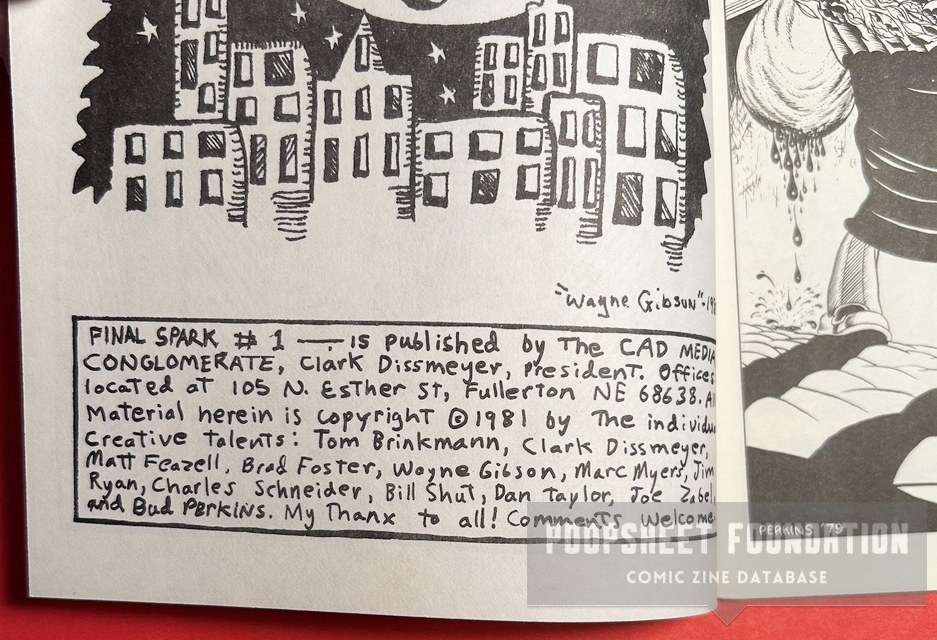 "Wayne Gibson"-198
FINAL SPARK # 1 — is published by The CAD MEDIA
CONGLOMERATE, Clark Dissmeyer, President. Offices
located at 105 N. Esther St, Fullerton NE 68638. Al
Material herein is copyright © 1981 by The individu
Creative Talents: Tom Brinkmann, Clark Dissmeyer,
Matt Feazell, Brad Foster, Wayne Gibson, Marc Myers, Jim
Ryan, Charles Schneider, Bill Shut, Dan Taylor, Joe Zabel
and Bud PERKINS. My Thanx to all! Comments Welcome
PERKINS '79
POOPSHEET FOUNDATION
COMIC ZINE DATABASE